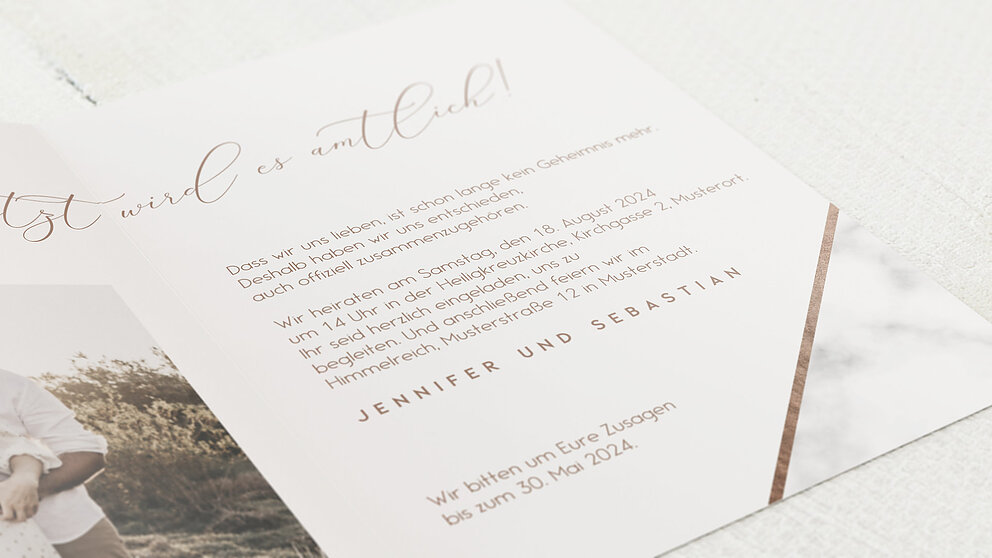 tzt wird es amtlich!
Dass wir uns lieben, ist schon lange kein Geheimnis mehr.
Deshalb haben wir uns entschieden,
auch offiziell zusammenzugehören.
Wir heiraten am Samstag, den 18. August 2024
um 14 Uhr in der Heiligkreuzkirche, Kirchgasse 2, Musterort.
Ihr seid herzlich eingeladen, uns zu
begleiten. Und anschließend feiern wir im
Himmelreich, Musterstraße 12 in Musterstadt.
JENNIFER UND SEBASTIAN
Wir bitten um Eure Zusagen
bis zum 30. Mai 2024.